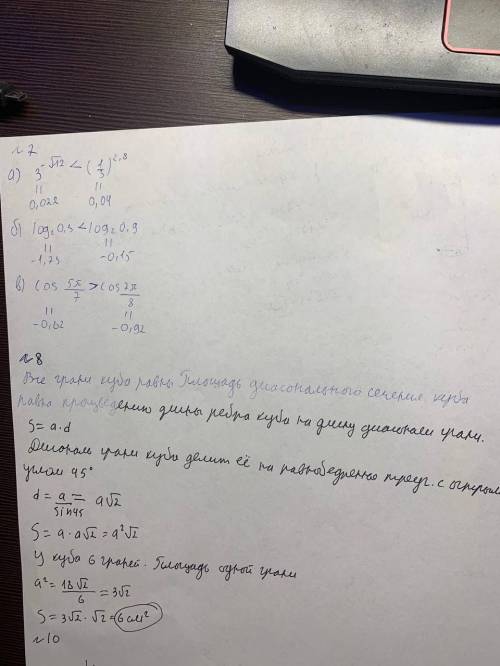 №7
а) 3^-√12 < (1/3)^2,8
0,022 0,04
б) log₂ 0,3 < log₂ 0,9
-1,73 -0,15
в) cos 5π/7 > cos 7π/8
-0,62 -0,92
№8
Все грани куба равны Площадь диагонального сечения куба
равна произведению длины ребра куба на длину диагонали грани.
S = a·d
Диагональ грани куба делит её на равнобедренно треуг. с острым
углом 45°
d = a/sin45 = a√2
S = a · a√2 = a²√2
У куба 6 граней. Площадь одной грани
a² = 18√2/6 = 3√2
S = 3√2 · √2 = 6 см²
№10